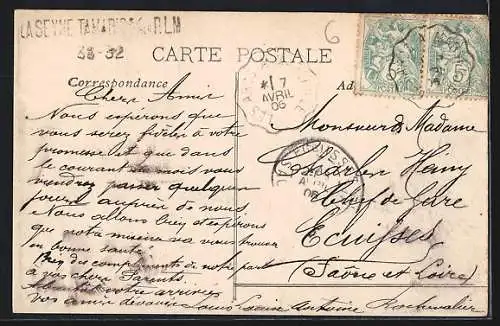 LA SEYNE TAMARIS P.L.M
38-32
6
CARTE POSTALE
Correspondance
17
AVRIL
06
Chers Amis
Nous espérons que
vous serez fidèles à votre
promesse et que dans
le courant de mois vous
viendrez passer quelques
jours auprès de nous
Nous allons bien et espérons
que notre missive va vous trouver
en bonne santé
Bien des compliments de notre part
à vos chers Parents
votre arrivée
vos amis dévoués Louis Antoine Rochevalier
Monsieur & Madame
Charles Hany
Chef de Gare
Ecuisses
(Saône et Loire)